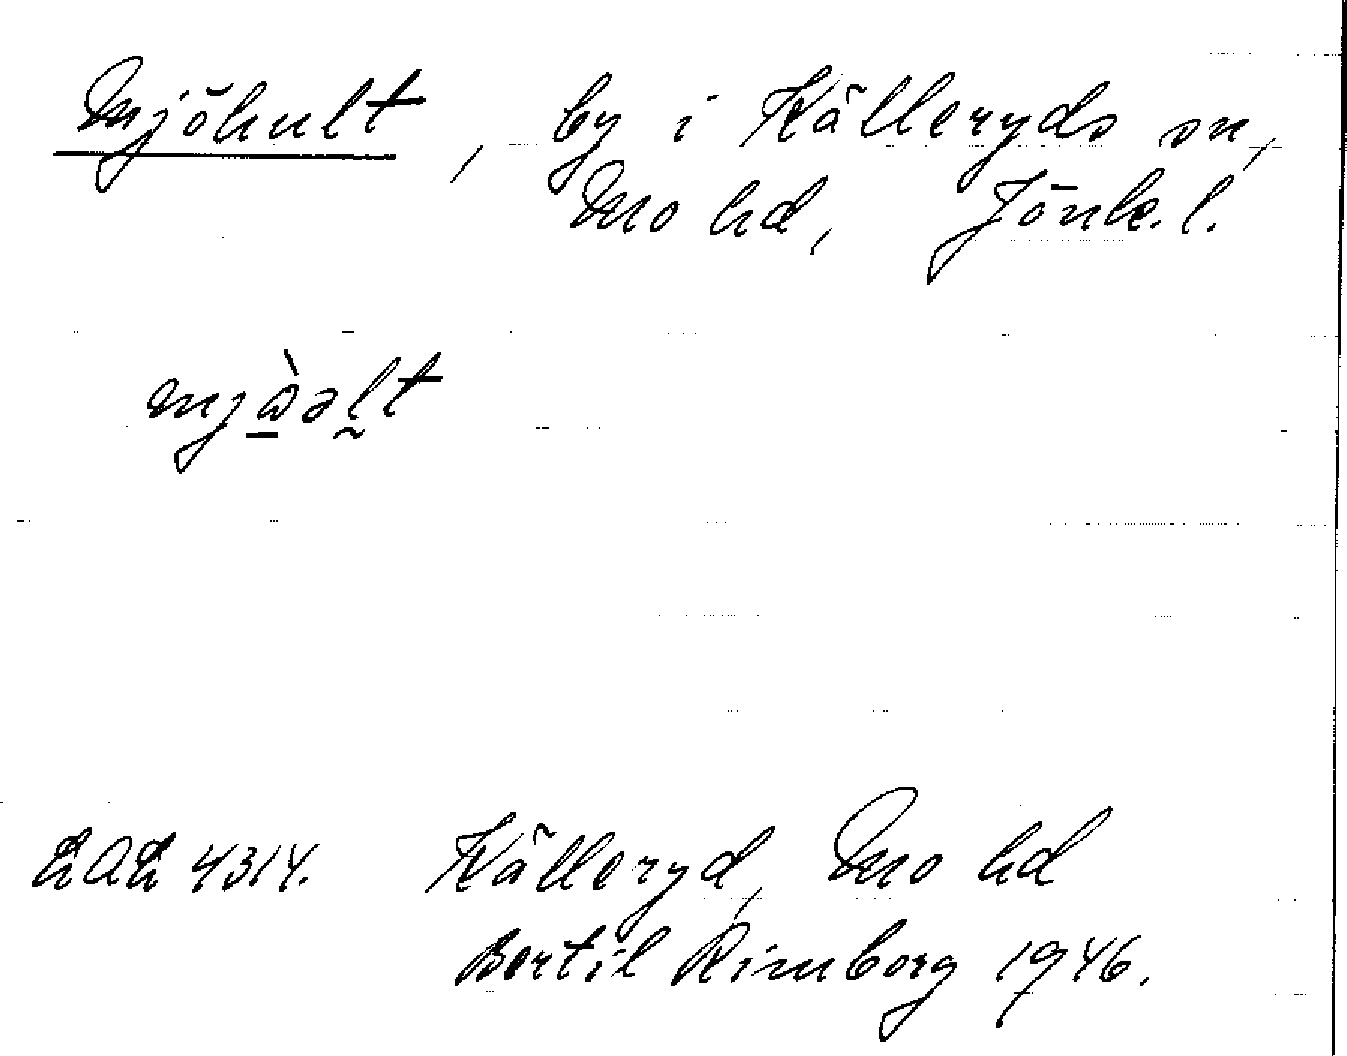 Mjöhult, by i Källeryds sn,
Mo hd, Jönk. l.
LAL 4314. Källeryd, Mo hd
Bertil Rimborg 1946.